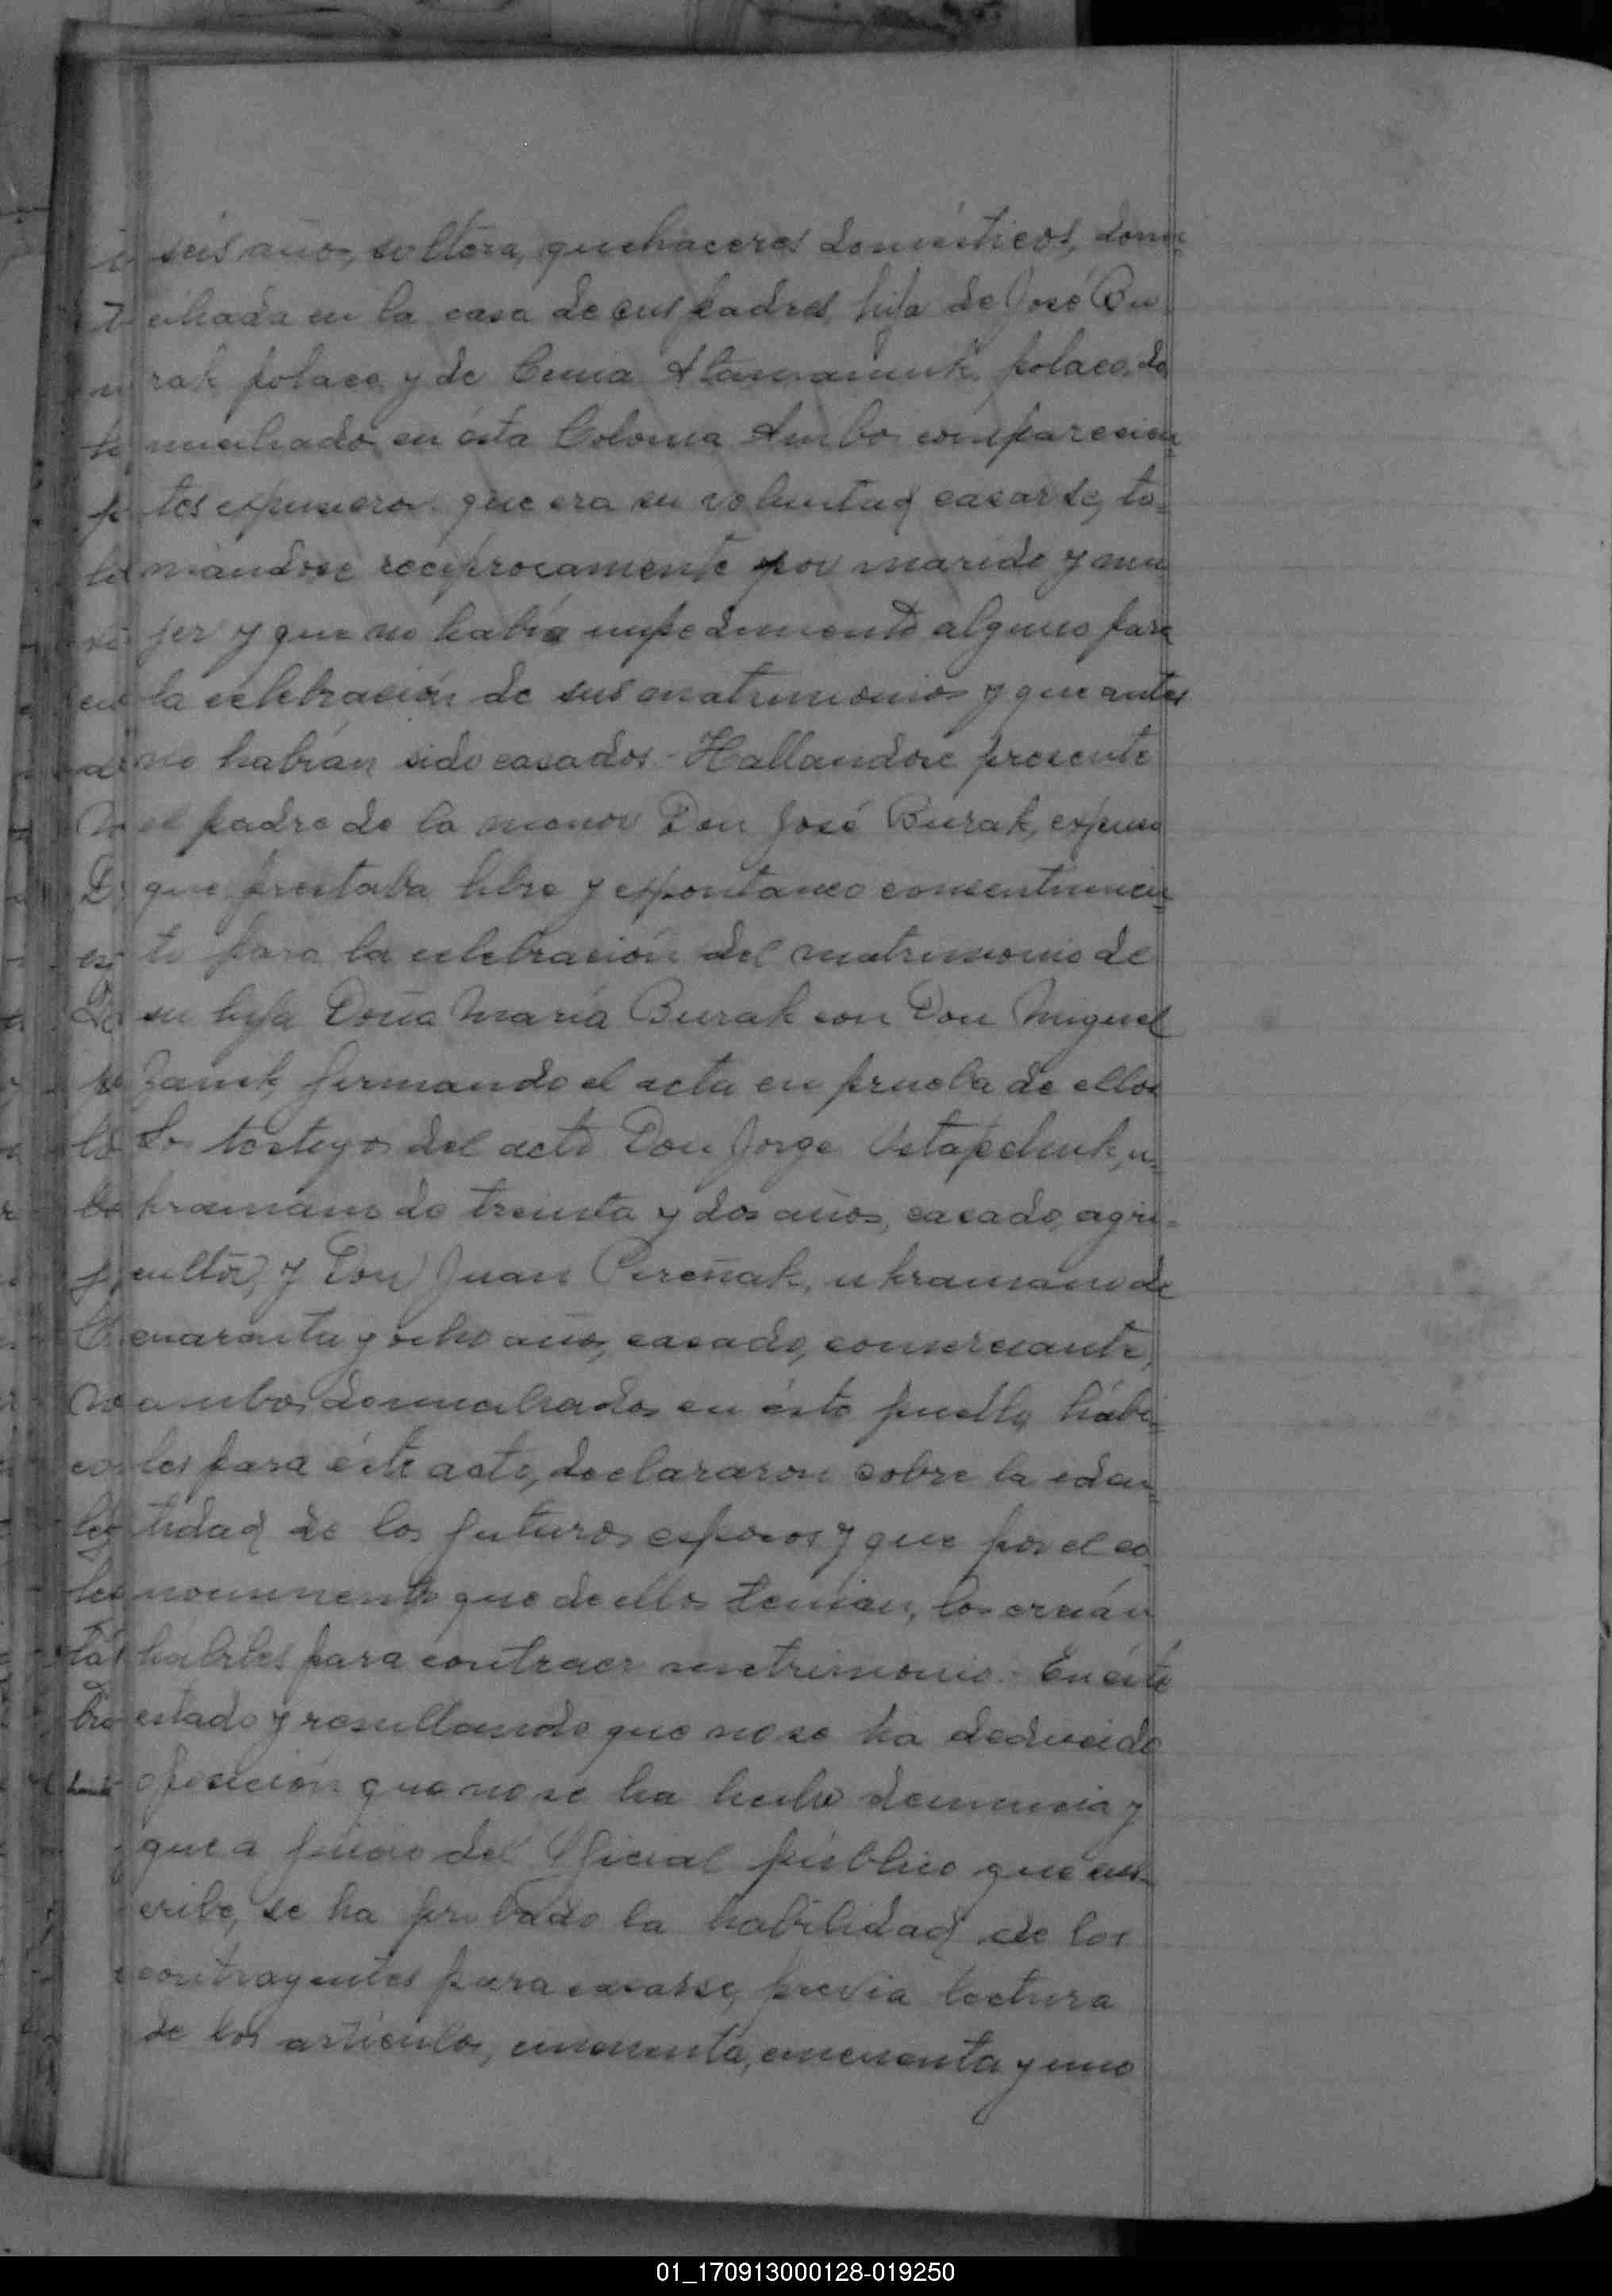 seis años, soltera, quehaceres domésticos, domi-
ciliada en la casa de sus padres, hija de José Bu-
rak, polaco, y de Atamaniuk, polaco, do
miciliados en ésta Colonia Ambos comparecien-
tes expusieron que era su voluntad casarse, to-
mandose reciprocamente por marido y mu
jer y que no había impedimento alguno para
la celebración de sus matrimonios y que antes
no habían sido casados - Hallandose presente
el padre de la menor Don José Burak, expuso
que prestaba libre y espontaneo consentimien-
to para la celebración del matrimonio de
su hija Doña María Burak con Don Miguel
firmando el acta en prueba de ellos
Los testigos del acto Don Jorge u-
kraniano de treinta y dos años, casado, agri-
cultor, y Don Juan Pereñak, ukraniano de
cuarenta y ocho años, casado, comerciante,
ambos domiciliados en ésta pueblo, hábi-
les para éste acto, declararon sobre la iden-
tidad de los futuros esposos y que por el co-
nocimiento que de ellos tenian, los creián
hábiles para contraer matrimonio.- En éste
estado y resultando que no se ha deducido
oposición que no se ha hecho denuncia y
que a juicio del Oficial público que sus-
cribe, se ha probado la habilidad de los
contrayentes para casarse, previa lectura
de los artículos, cincuenta, cincuenta y uno
01_170913000128-019250